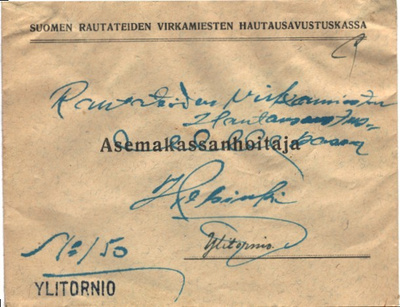 SUOMEN RAUTATEIDEN VIRKAMIESTEN HAUTAUSAVUSTUSKASSA
Rautateiden Virkamiesten
Hautausavustus-
Asemakassanhoitaja
Helsinki
Ylitornio
YLITORNIO